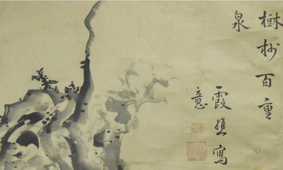 樹杪百重
泉
霞樵寫
意